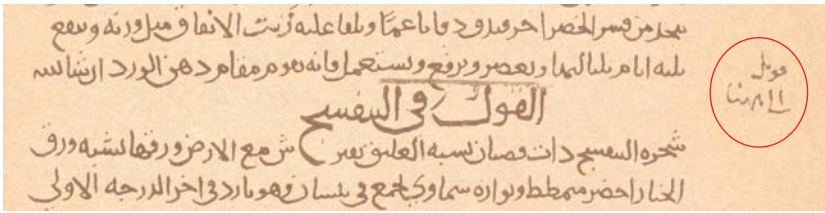 يوخذ من قسر الخضرا جزو يدق دقا ناعما ويلقا عليه زيت الانفاق مثل وزنه وينقع
ثلثة ايام بلياليها ويعصر ويرفع ويستعمل فانه يقوم مقام دهن الورد ان شا الله
القول في البنفسج
شجره البنفسج دات قصبان تسبه العليق يفترش مع الارض ورقها تشبه ورق
الخباز اخضر مبطط ونواره سماوي يجمع في نيسان وهو بارد في اخر الدرجه الاولي
قوبل
الى هنا